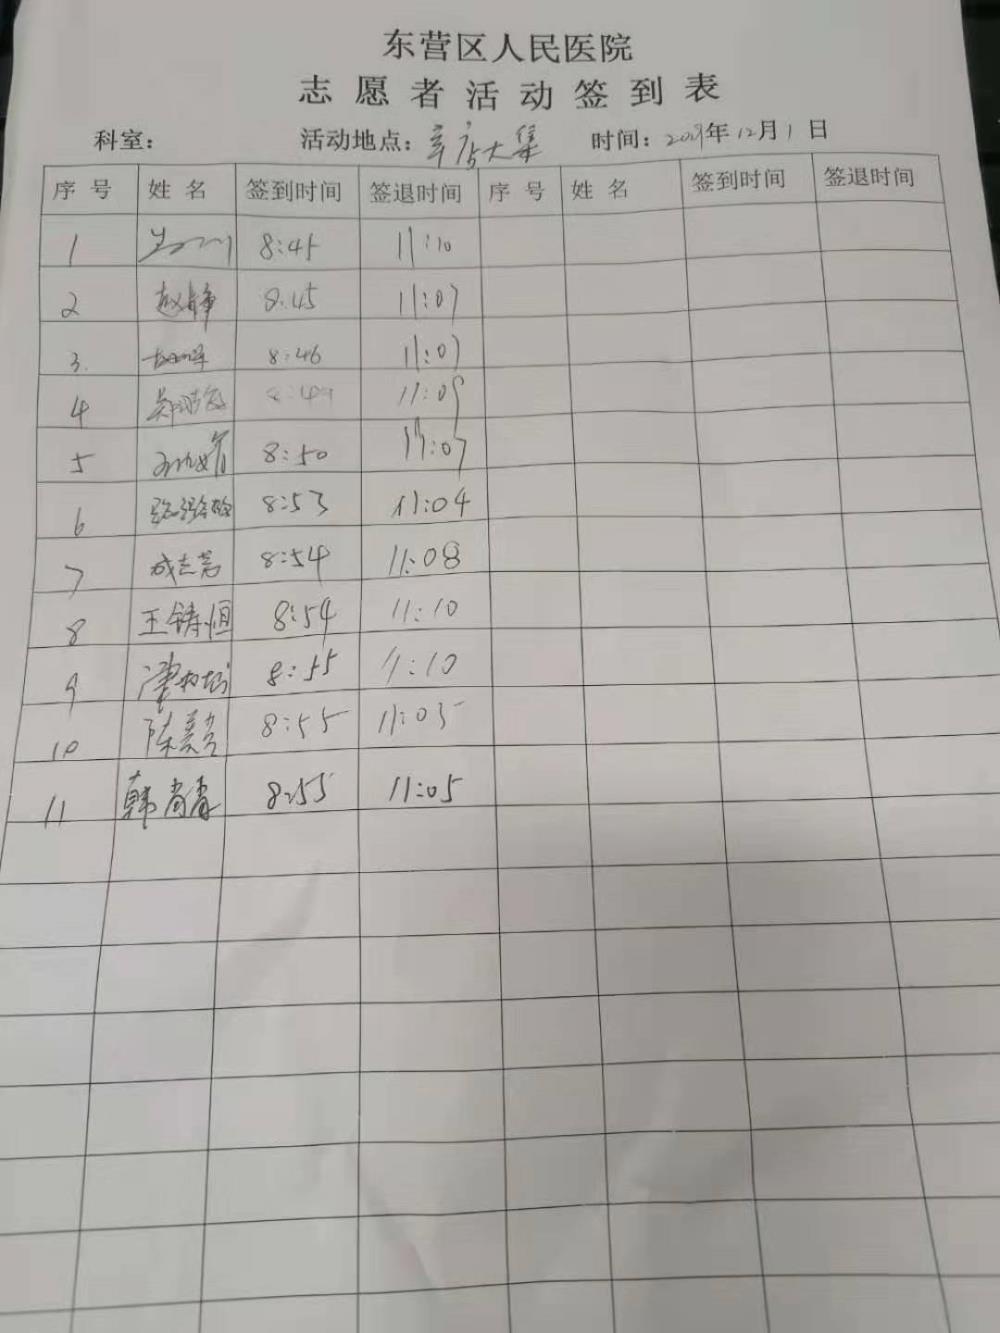 东营区人民医院
志愿者活动签到表
科室： 活动地点：辛店大集 时间：2019年12月1日
序号 姓名 签到时间 签退时间 序号 姓名 签到时间 签退时间
1 8:45 11:10
2 赵静 8:45 11:07
3. 8:46 11:07
4 8:49 11:09
5 8:50 11:07
6 8:53 11:04
7 成志芳 8:54 11:08
8 王铸恒 8:54 11:10
9 8:55 11:10
10 陈 8:55 11:05
11 韩肖青 8:55 11:05